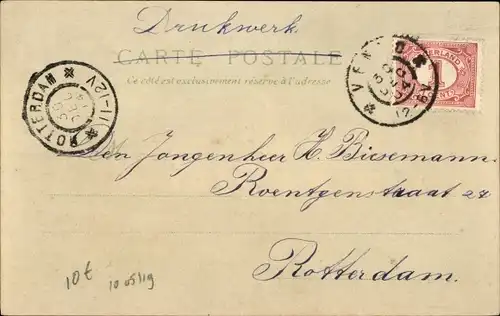 Drukwerk
CARTE POSTALE
Ce côté est exclusivement réservé à l'adresse
ROTTERDAM
11-12V
Den Jongenheer H. Biesemann.
Roentgenstraat 24
Rotterdam.
10€
100519